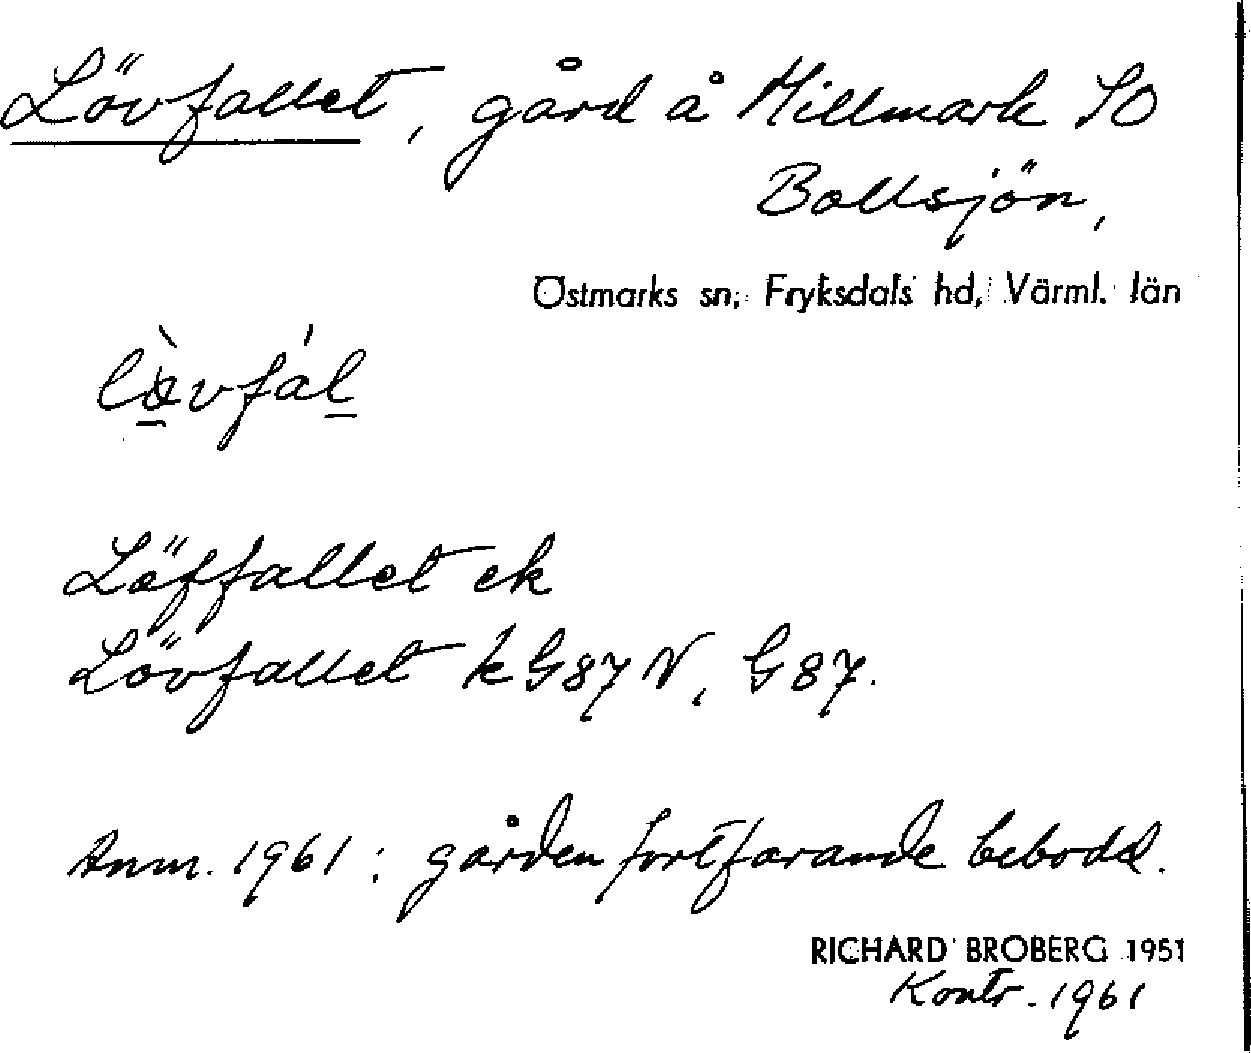 Lövfallet, gård å Millmark SO
Bollsjön,
Östmarks sn, Fryksdals hd, Värml. län
Löffallet ek
Lövfallet k G87 N, G87.
Anm. 1961: gården fortfarande bebodd.
RICHARD BROBERG 1951
Kontr. 1961